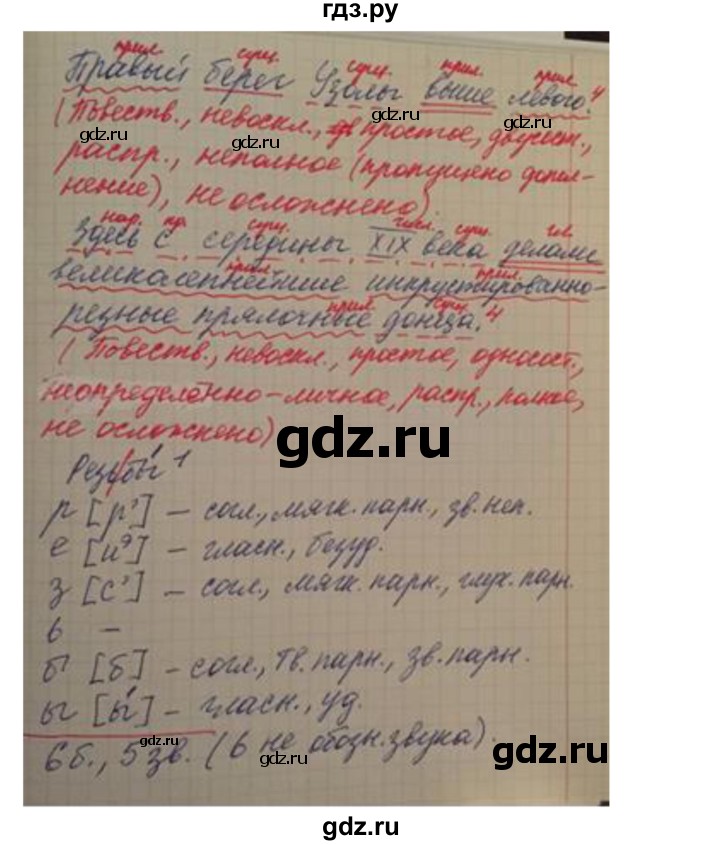 гдз.ру
прил. сущ. сущ. прил. прил.
Правый берег Узолы выше левого.⁴
(Повеств., невоскл., простое, двусост.,
gdz.ru gdz.ru
распр., неполное (пропущено допол-
gdz.ru
нение), не осложнено).
нар. пр. сущ. числ. сущ. гл.
Здесь с середины XIX века делали
прил. прил.
великолепнейшие инкрустированно-
прил. сущ.
резные прялочные донца.⁴
(Повеств., невоскл., простое, односост.,
неопределённо-личное, распр., полное,
не осложнено)
gdz.ru
Резьбы¹
р [р'] – согл., мягк. парн., зв. неп.
е [иэ] – гласн., безуд.
з [с'] – согл., мягк. парн., глух. парн.
ь –
б [б] – согл., тв. парн., зв. парн.
ы [ы́] – гласн., уд.
6 б., 5 зв. (ь не обозн. звука).
gdz.ru gdz.ru gdz.ru
gdz.ru